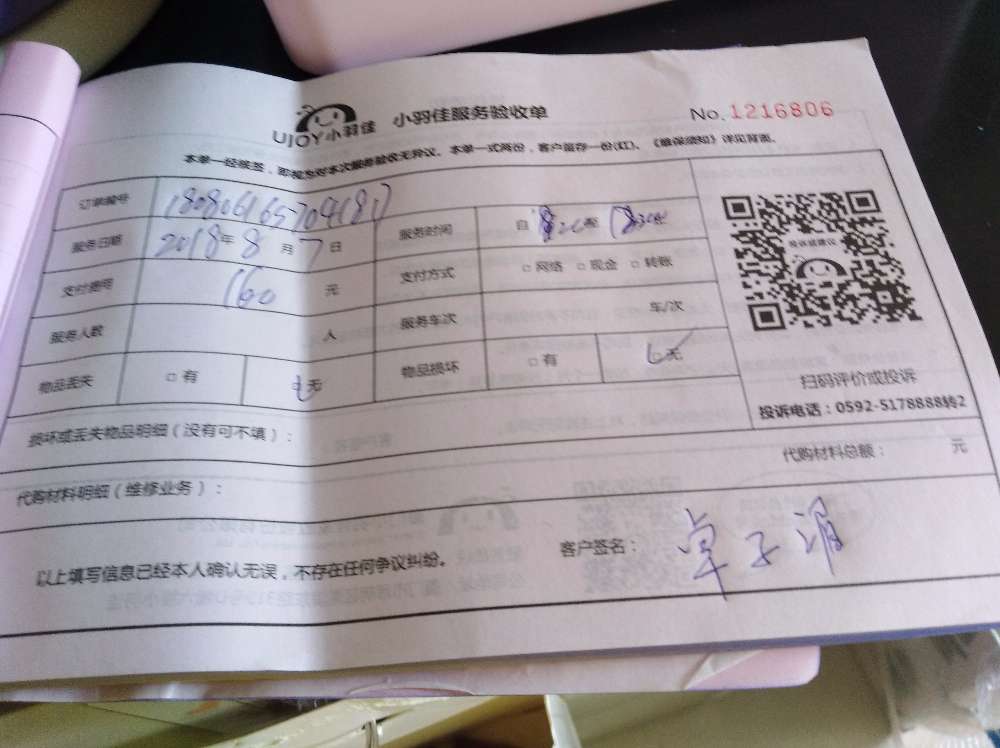 UJOY小羽佳 小羽佳服务验收单 No.1216806
本单一经核签，即视为对本次服务验收无异议。本单一式两份，客户留存一份(红)。《维保须知》详见背面。
订单编号 180806165704(8)
服务日期 2018年8月7日 服务时间 自 至
支付费用 160 元 支付方式 □网络 □现金 □转账
服务人数 人 服务车次 车/次
物品丢失 □有 □无 物品损坏 □有 □无
投诉或建议
扫码评价或投诉
投诉电话：0592-5178888转2
损坏或丢失物品明细（没有可不填）：
代购材料明细（维修业务）： 代购材料总额： 元
以上填写信息已经本人确认无误，不存在任何争议纠纷。 客户签名：卓子涓